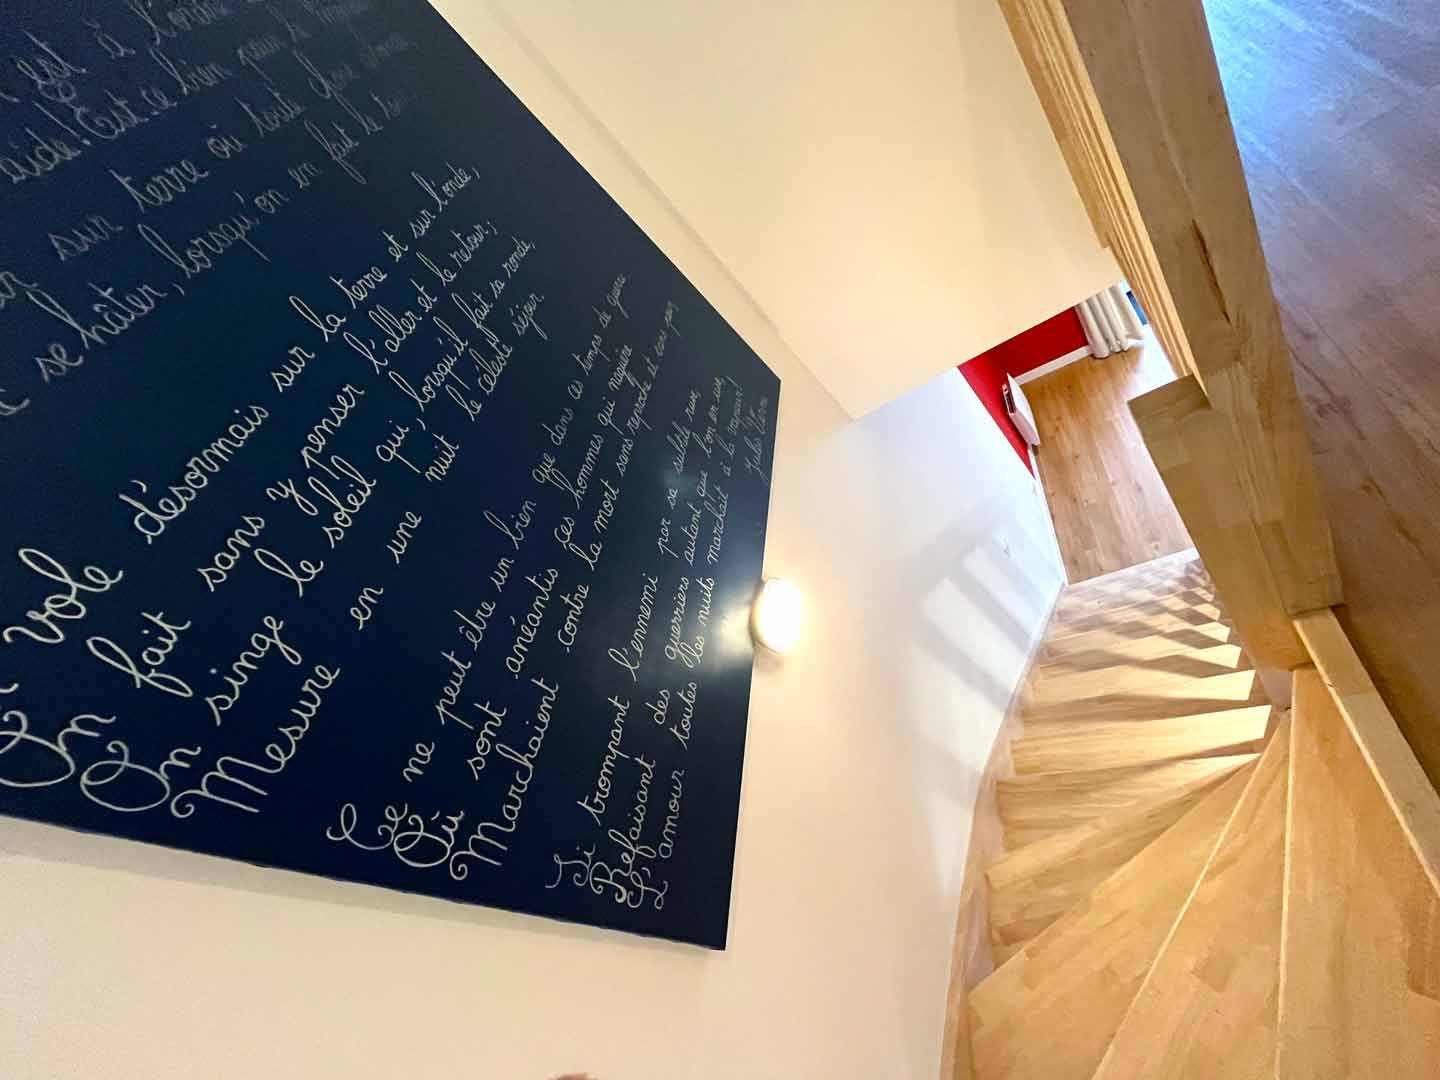 est à l'ordre
aide! Est-ce bien pour le
sur terre où toute chose
se hâter, lorsqu'on en fait le
On vole désormais sur la terre et sur l'onde,
On fait sans y penser l'aller et le retour;
On singe le soleil qui, lorsqu'il fait sa ronde,
Mesure en une nuit le céleste séjour.
Ce ne peut être un bien que dans ces temps de guerre
Où sont anéantis ces hommes qui naguère
Marchaient contre la mort sans reproche et sans peur
Si trompant l'ennemi par sa subtile ruse,
Refaisant des guerriers autant que l'on en use,
L'amour toutes les nuits marchait à la vapeur!
Jules Verne